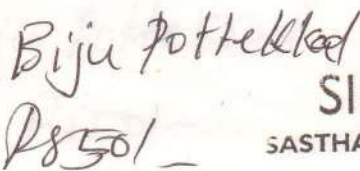 Biju Pottekkad
SI
Rs 50/_
SASTHA